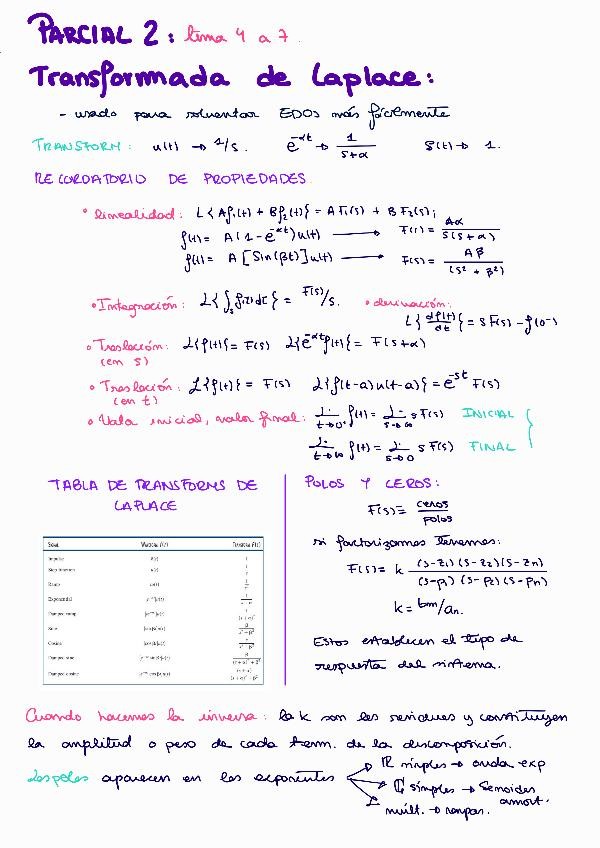 PARCIAL 2: tema 4 a 7.
Transformada de Laplace:
- usado para solventar EDOs más fácilmente
TRANSFORM: u(t) → 1/s. e^{-αt} → 1/(s+α) δ(t) → 1.
RECORDATORIO DE PROPIEDADES
• linealidad: L{Af₁(t) + Bf₂(t)} = A F₁(s) + B F₂(s);
f(t) = A(1 - e^{-αt})u(t) → F(s) = Aα/(s(s+α))
f(t) = A[Sin(βt)]u(t) → F(s) = Aβ/(s² + β²)
• Integración: L{∫ f(τ)dτ} = F(s)/s. • derivación:
L{df(t)/dt} = s F(s) - f(0⁻)
• Traslación: L{f(t)} = F(s) L{e^{-αt}f(t)} = F(s+α)
(en s)
• Traslación: L{f(t)} = F(s) L{f(t-a)u(t-a)} = e^{-st} F(s)
(en t)
• Valor inicial, valor final: lim t→0⁺ f(t) = lim s→∞ s F(s) INICIAL
lim t→∞ f(t) = lim s→0 s F(s) FINAL
TABLA DE TRANSFORMS DE
LAPLACE
Impulse
Step function
Ramp
Exponential
Damped ramp
Sine
Cosine
Damped sine
Damped cosine
POLOS Y CEROS:
F(s) = ceros/polos
si factorizamos tenemos:
F(s) = k (s-z₁)(s-z₂)(s-zn)/(s-p₁)(s-p₂)(s-pn)
k = bm/an.
Estos establecen el tipo de
respuesta del sistema.
Cuando hacemos la inversa: la k son los residuos y constituyen
la amplitud o peso de cada term. de la descomposición.
Los polos aparecen en los exponentes
ℝ simples → onda exp
ℂ simples → Senoides
amort.
múlt. → rampas.